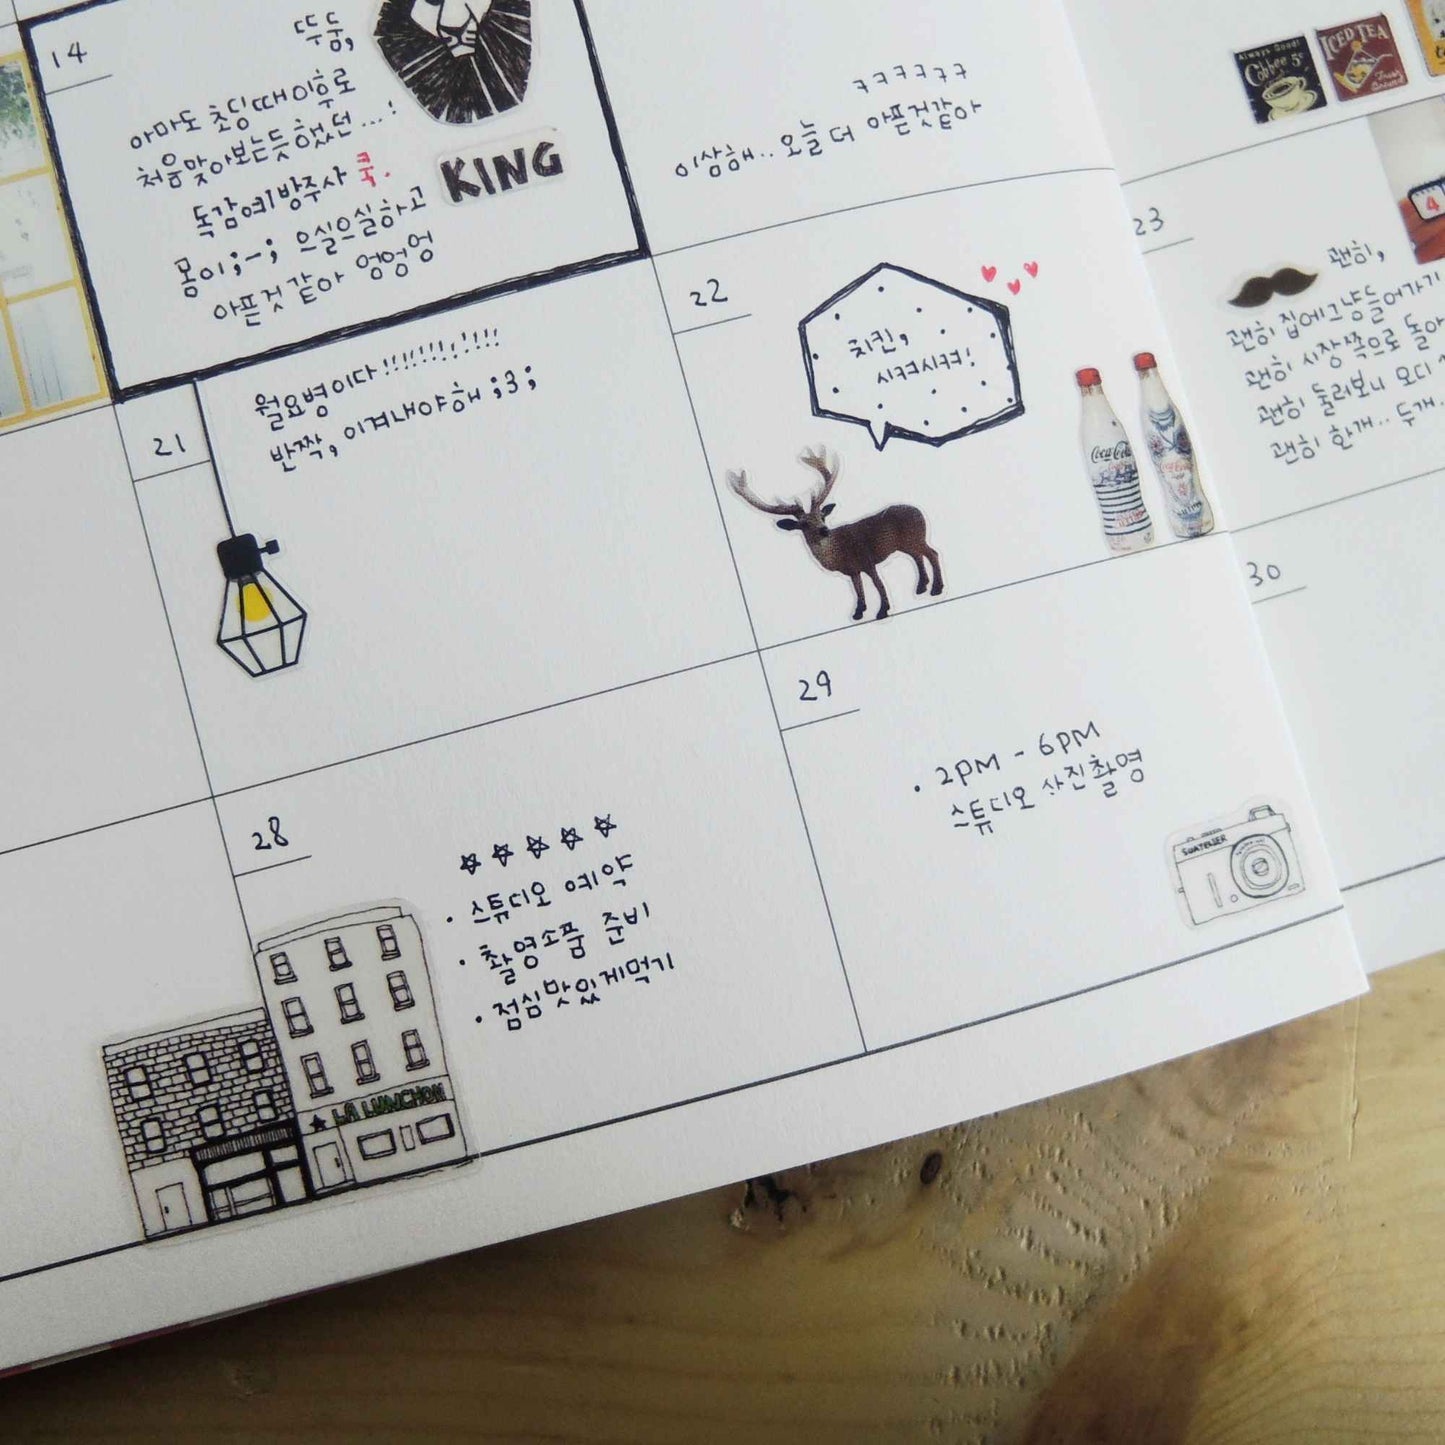 14
뚜둠,
아마도 초딩때이후로
처음맞아보는듯했던...!
독감예방주사 쿡.
몸이;-; 으실으실하고
아픈것같아 엉엉엉
KING
ㅋㅋㅋㅋㅋㅋ
이상해.. 오늘 더 아픈것같아
Always Good!
Coffee 5¢
ICED TEA
Fresh Brewed
21
월요병이다!!!!!!!!!!!
반짝, 이겨내야해 ;3;
22
치킨,
시켜시켜!
Coca-Cola
Coca-Cola
23
4
괜히,
괜히 집에그냥들어가기
괜히 시장쪽으로 돌아
괜히 둘러보니 오디
괜히 한개.. 두개..
28
☆☆☆☆☆
· 스튜디오 예약
· 촬영소품 준비
· 점심맛있게먹기
★ LA LUNCHON
29
· 2PM - 6PM
스튜디오 사진촬영
SUATELIER
30